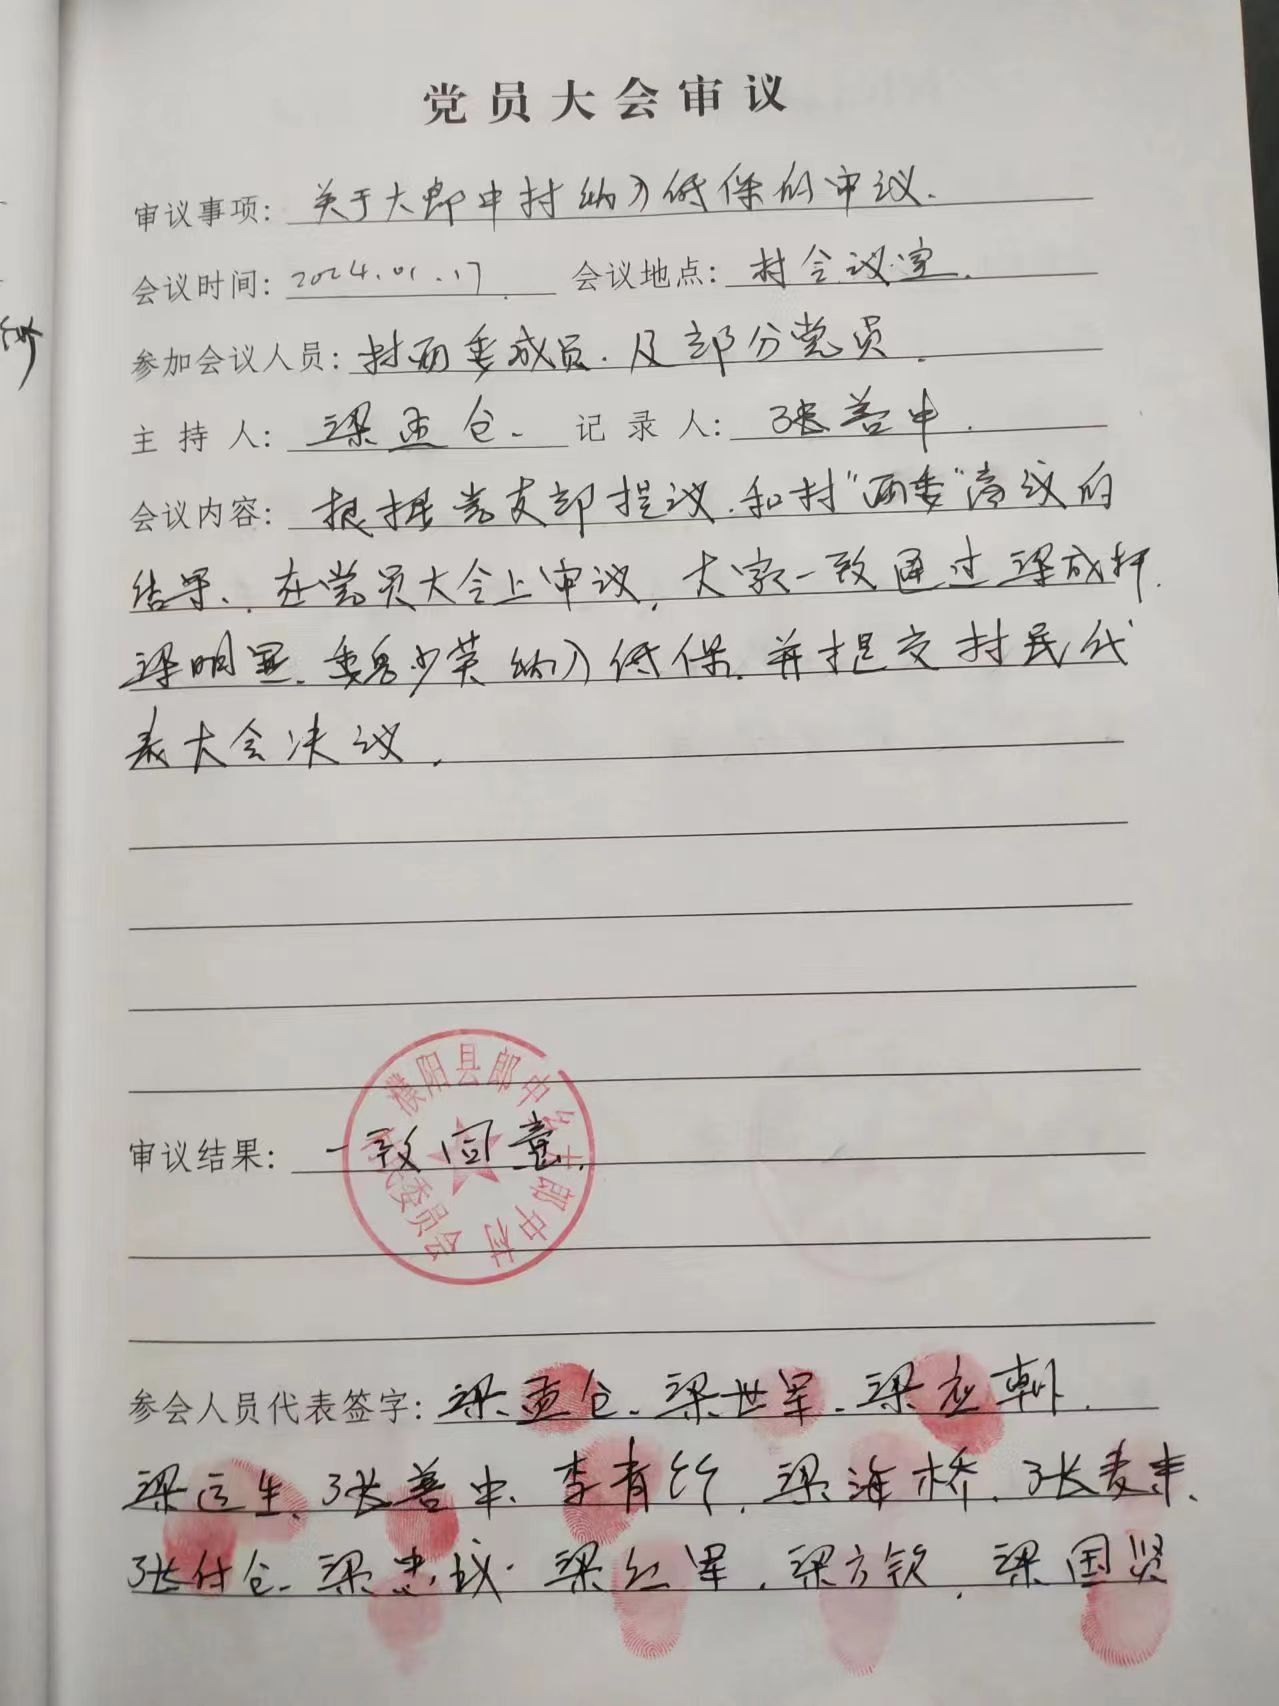 党员大会审议
审议事项: 关于大郎中村纳入低保的审议.
会议时间: 2024.01.17. 会议地点: 村会议室.
参加会议人员: 村两委成员.及部分党员.
主持人: 梁孟仓. 记录人: 张善中.
会议内容: 根据党支部提议.和村"两委"商议的
结果.在党员大会上审议,大家一致通过梁成
梁明 .魏少英纳入低保.并提交村民代
表大会决议.
濮阳县郎中乡大郎中村
村民委员会
审议结果: 一致同意.
参会人员代表签字: 梁孟仓.梁世军.梁应朝.
梁运生.张善中.李青竹.梁海桥.张麦来.
张付仓.梁忠 .梁红军.梁方钦.梁国贤